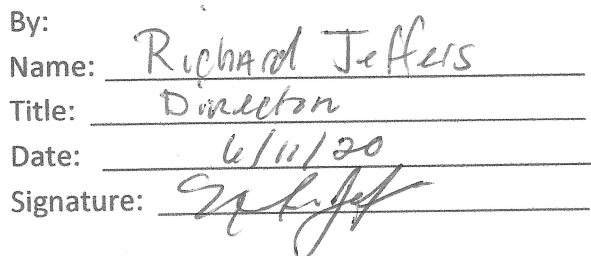 By:
Name: Richard Jeffers
Title: Director
Date: 6/11/20
Signature: